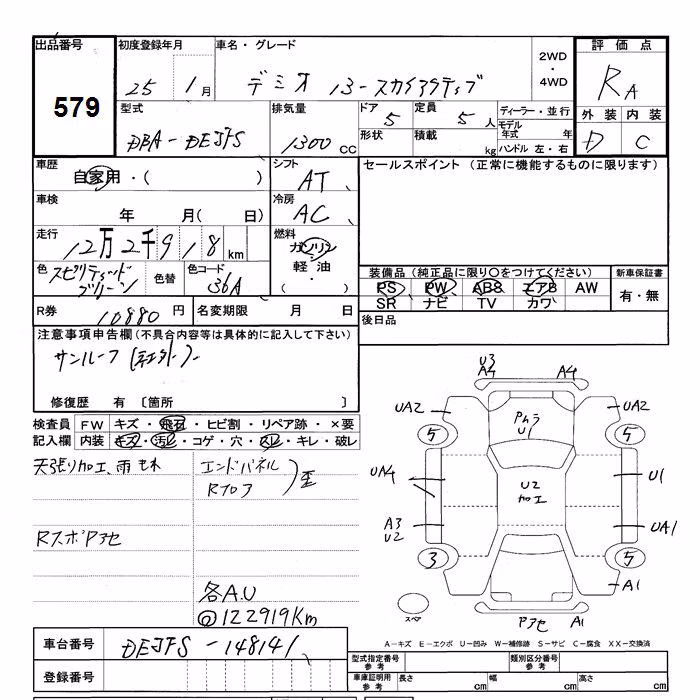 出品番号 初度登録年月 車名・グレード 2WD・4WD 評価点
579
25 1月 デミオ 13-スカイアクティブ RA
型式 排気量 ドア 定員 ディーラー・並行 外装 内装
DBA-DEJFS 1300cc 5 5人 モデル年式 年 D C
形状 積載 kg ハンドル 左・右
車歴 自家用・( ) シフト AT セールスポイント (正常に機能するものに限ります)
車検 年 月( 日) 冷房 AC
走行 12万2千918km 燃料 ガソリン
軽油・
色 スピリティッドグリーン 色替 色コード 36A 装備品(純正品に限り○をつけてください) 新車保証書
PS PW ABS エアB AW 有・無
SR ナビ TV カワ
R券 10880円 名変期限 月 日 後日品
注意事項申告欄(不具合内容等は具体的に記入して下さい)
サンルーフ
修復歴 有 〔箇所 〕
検査員記入欄 FW キズ・飛石・ヒビ割・リペア跡・×要
内装 キズ・汚レ・コゲ・穴・スレ・キレ・破レ
天張り加工、雨モレ エンドパネル
Rフロア 歪
RスポPアセ
各A.U
@122919Km
U3
A4 A4
UA2 Pムラ U1 UA2
5 5
UA4 U2 加工 U1
A3 U2 UA1
3 5
A1
スペア Pアセ A1
A-キズ E-エクボ U-凹み W-補修跡 S-サビ C-腐食 XX-交換済
車台番号 DEJFS-148141
登録番号
型式指定番号 参考 類別区分番号 参考
車庫証明用 参考 長さ cm 幅 cm 高さ cm